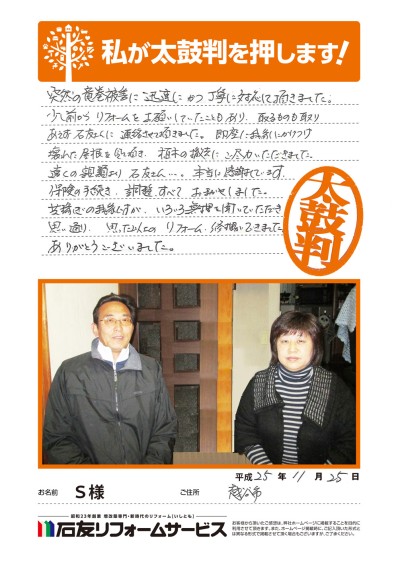 私が太鼓判を押します!
突然の竜巻被害に迅速にかつ丁寧に対応して頂きました。
少し前からリフォームをお願いしていたこともあり、取るものも取り
あえず石友さんに連絡させて頂きました。即座に我家にかけつけ
傷んだ屋根を 植木の撤去にご尽力いただきました。
遠くの親類より石友さん…。本当に感謝しています。
保険の手続き、調題すべておまかせしました。
いろいろ無理を聞いていただき
思い通り、思った以上のリフォーム、修繕ができました。
ありがとうございました。
太鼓判
平成25年11月25日
お名前 S様 ご住所 越谷市
昭和33年創業 増改築専門・新時代のリフォーム(いしとも)
石友リフォームサービス
お客様から頂いたご感想は、弊社ホームページに掲載することを目的に
利用させて頂きます。また、ホームページ掲載時に、ご記入頂いた形式と
は異なる形式で掲載させて頂く場合もございますが、ご了承ください。